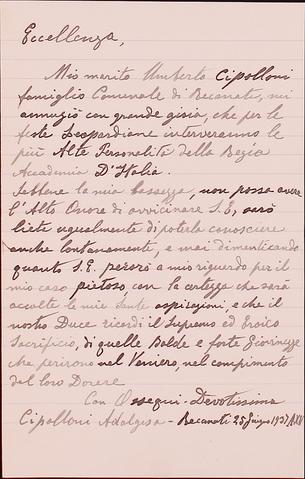 Eccellenza,
Mio marito Umberto Cipolloni
famiglio Comunale di Recanati, mi
annuziò con grande gioia, che per le
feste Leopardiane interveranno le
più Alte Personalità della Regia
Accademia D'Italia.
Sebbene la mia bassezza, non possa avere
l'Alto Onore di avvicinare S.E, sarò
lieta ugualmente di poterla conoscere
anche lontanamente, e mai dimenticando
quanto S.E. perorò a mio riguardo per il
mio caso pietoso, con la certezza che sarà
accolte le mie sante aspirazioni, e che il
nostro Duce ricordi il Supremo ed Eroico
Sacrificio, di quelle Balde e forte Giovinezze
che perirono nel Veniero, nel compimento
del loro Dovere
Con Ossequi - Devotissima
Cipolloni Adalgisa - Recanati 25 Giugno 1937